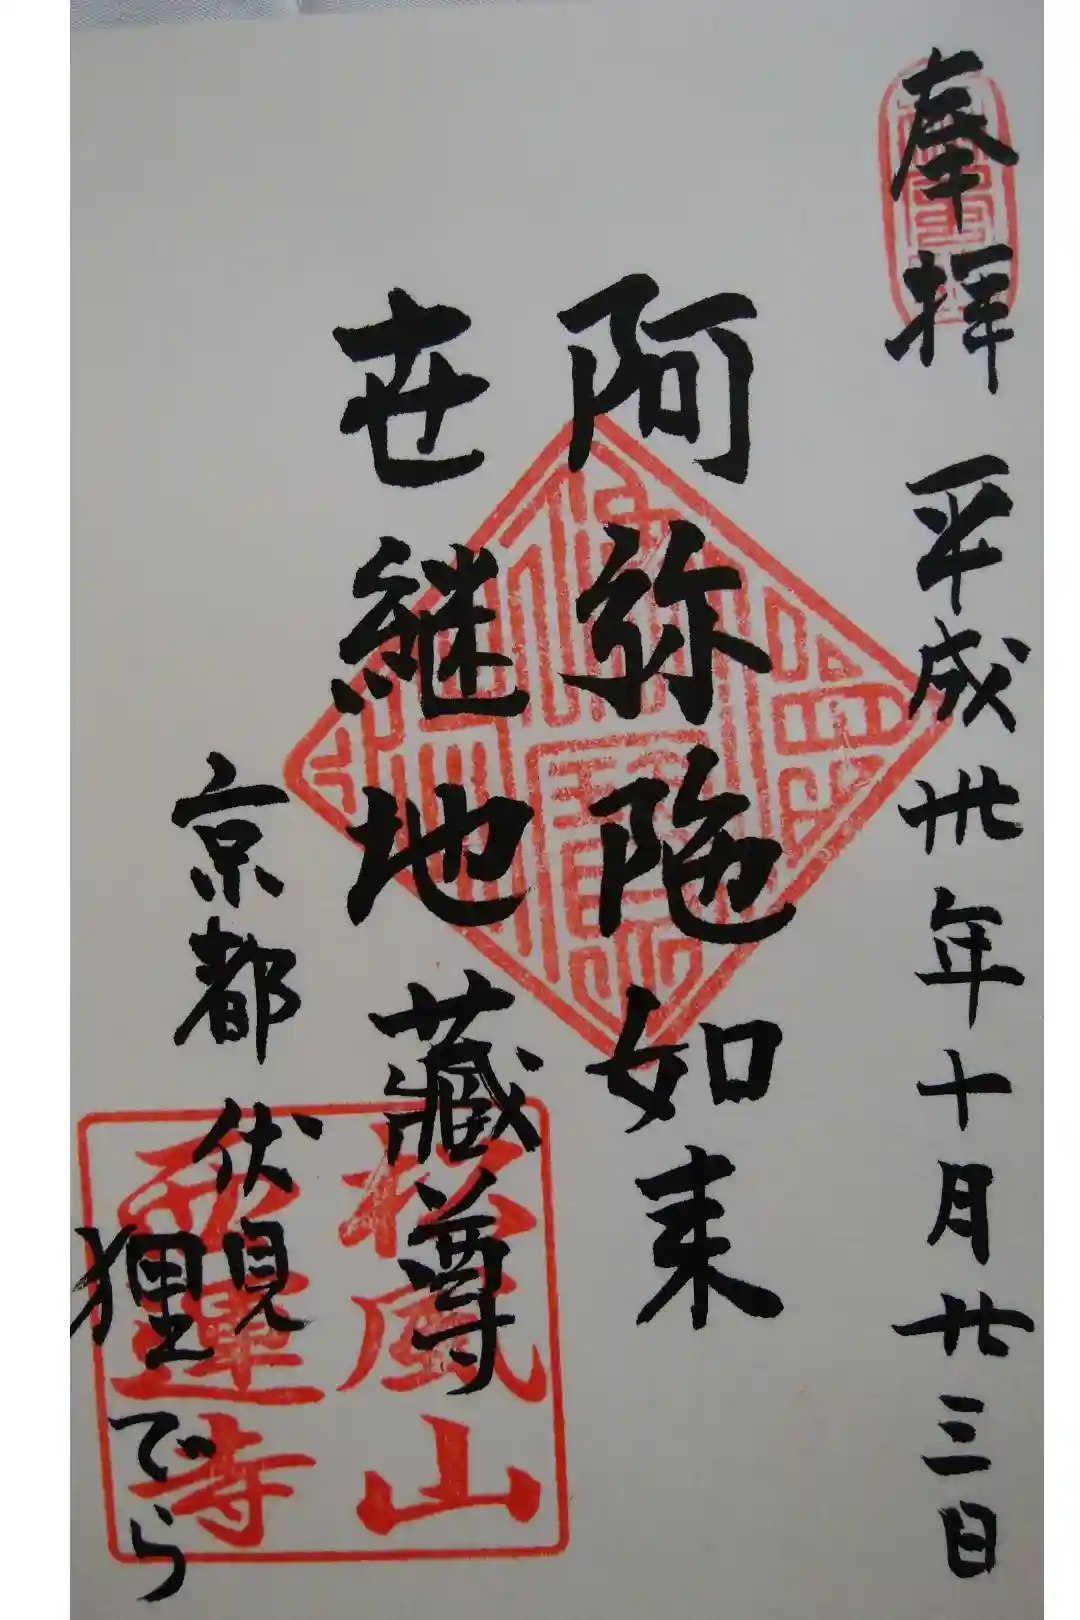 奉拝 平成卅年十月廿三日
阿弥陀如来
世継地藏尊
京都 伏見
狸でら
松風山
西蓮寺